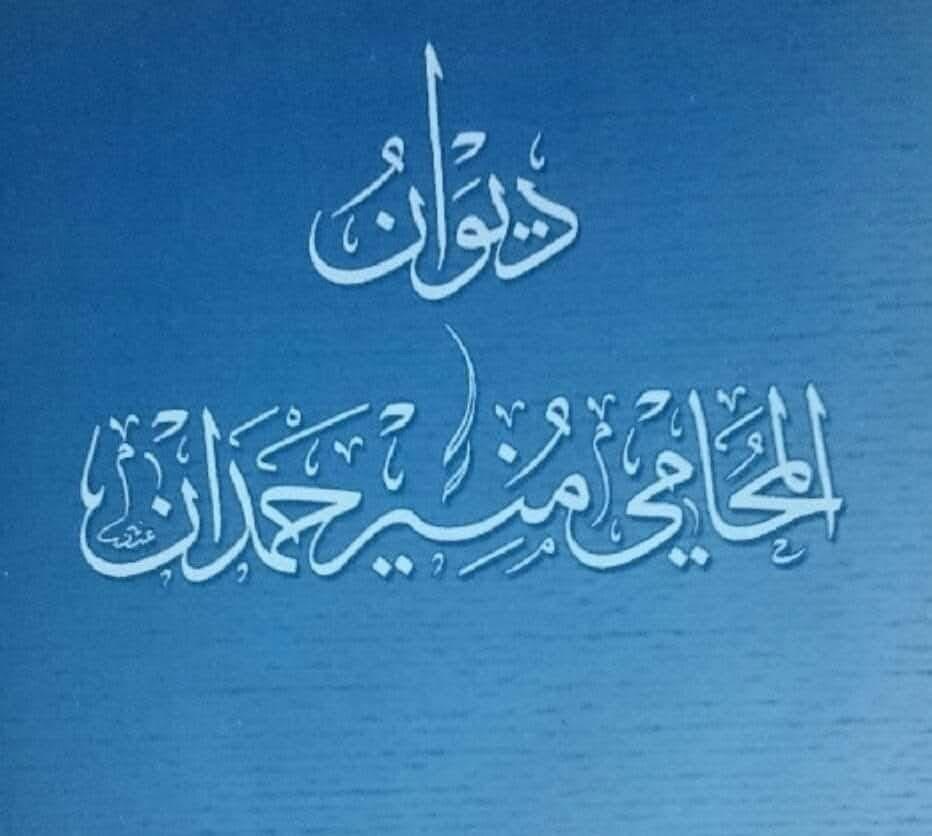 دِيوَانُ
المُحَامِي مُنِير حَمْدَان